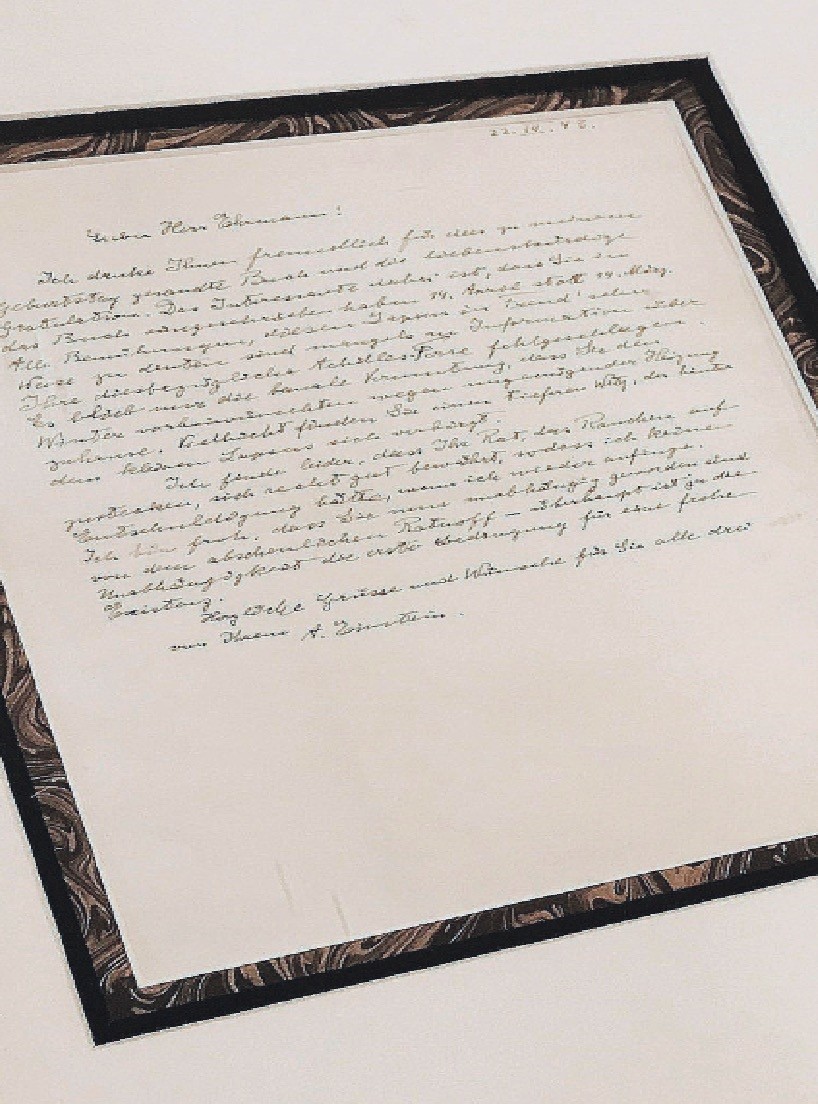 22. IV. 43.
Lieber Herr Ehrmann!
Ich danke Ihnen freundlich für das zu meinem
Geburtstag gesandte Buch und die liebenswürdige
Gratulation. Das Interessante dabei ist, dass Sie in
das Buch eingeschrieben haben 14. April statt 14. März.
Alle Bemühungen, diesen Lapsus in Freud'scher
Weise zu deuten sind mangels an Information über
Ihre diesbezügliche Achilles-Ferse fehlgeschlagen
Es blieb nur die banale Vermutung, dass Sie den
Winter verwünschten wegen ungenügender Heizung
zuhause. Vielleicht finden Sie einen tieferen Witz, der hinter
dem kleinen Lapsus sich verbirgt.
Ich finde leider, dass Ihr Rat, das Rauchen auf-
zustecken, sich recht gut bewährt, sodass ich keine
Entschuldigung hätte, wenn ich wieder anfinge.
Ich bin froh, dass Sie nun unabhängig geworden sind
von dem abscheulichen – überhaupt ist ja die
Unabhängigkeit die erste Bedingung für eine frohe
Existenz.
Herzliche Grüsse und Wünsche für Sie alle drei
von Ihrem A. Einstein.